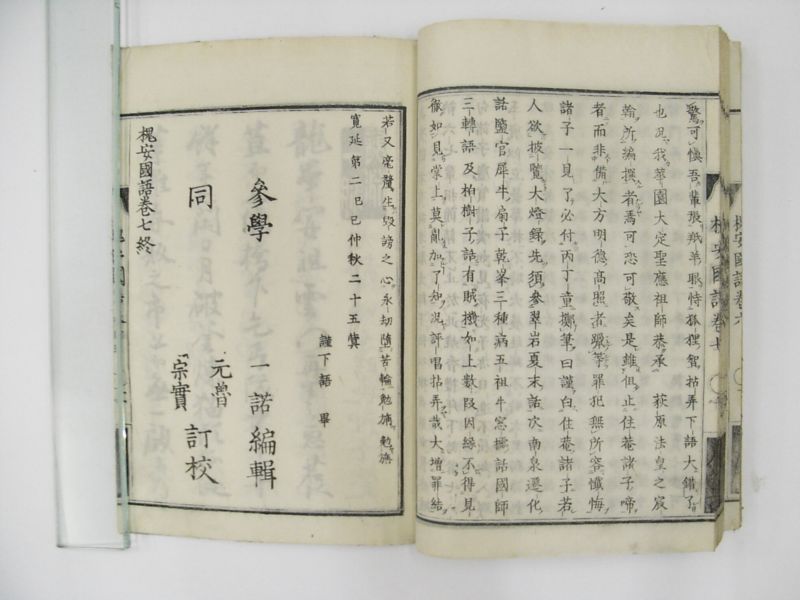 驚可愼吾輩般羝羊眼恃狐狸智拈弄下語大錯了
也況我華園大定聖應祖師恭承　荻原法皇之宸
翰所編撰者焉可恐可敬矣是雖但止住菴諸子啼
者而非備大方明德高照者獵等罪犯無所容懺悔
諸子一見了必付丙丁童擲筆曰謹白住菴諸子若
人欲披覽大燈錄先須參翠岩夏末話次南泉遷化
話鹽官犀牛扇子乾峯三種病五祖牛窓櫺話國師
三轉語及柏樹子話有賊機如上數段因緣不得見
徹如見掌上莫亂加了知況評唱拈弄哉大增罪結
若又毫釐生毀謗之心永劫墮苦輪勉旃勉旃
寬延第二己巳仲秋二十五蓂
謹下語畢
參學　一諾編輯
同　元魯
宗實　訂校
槐安國語卷七終
槐安國語卷七
槐安國語卷六